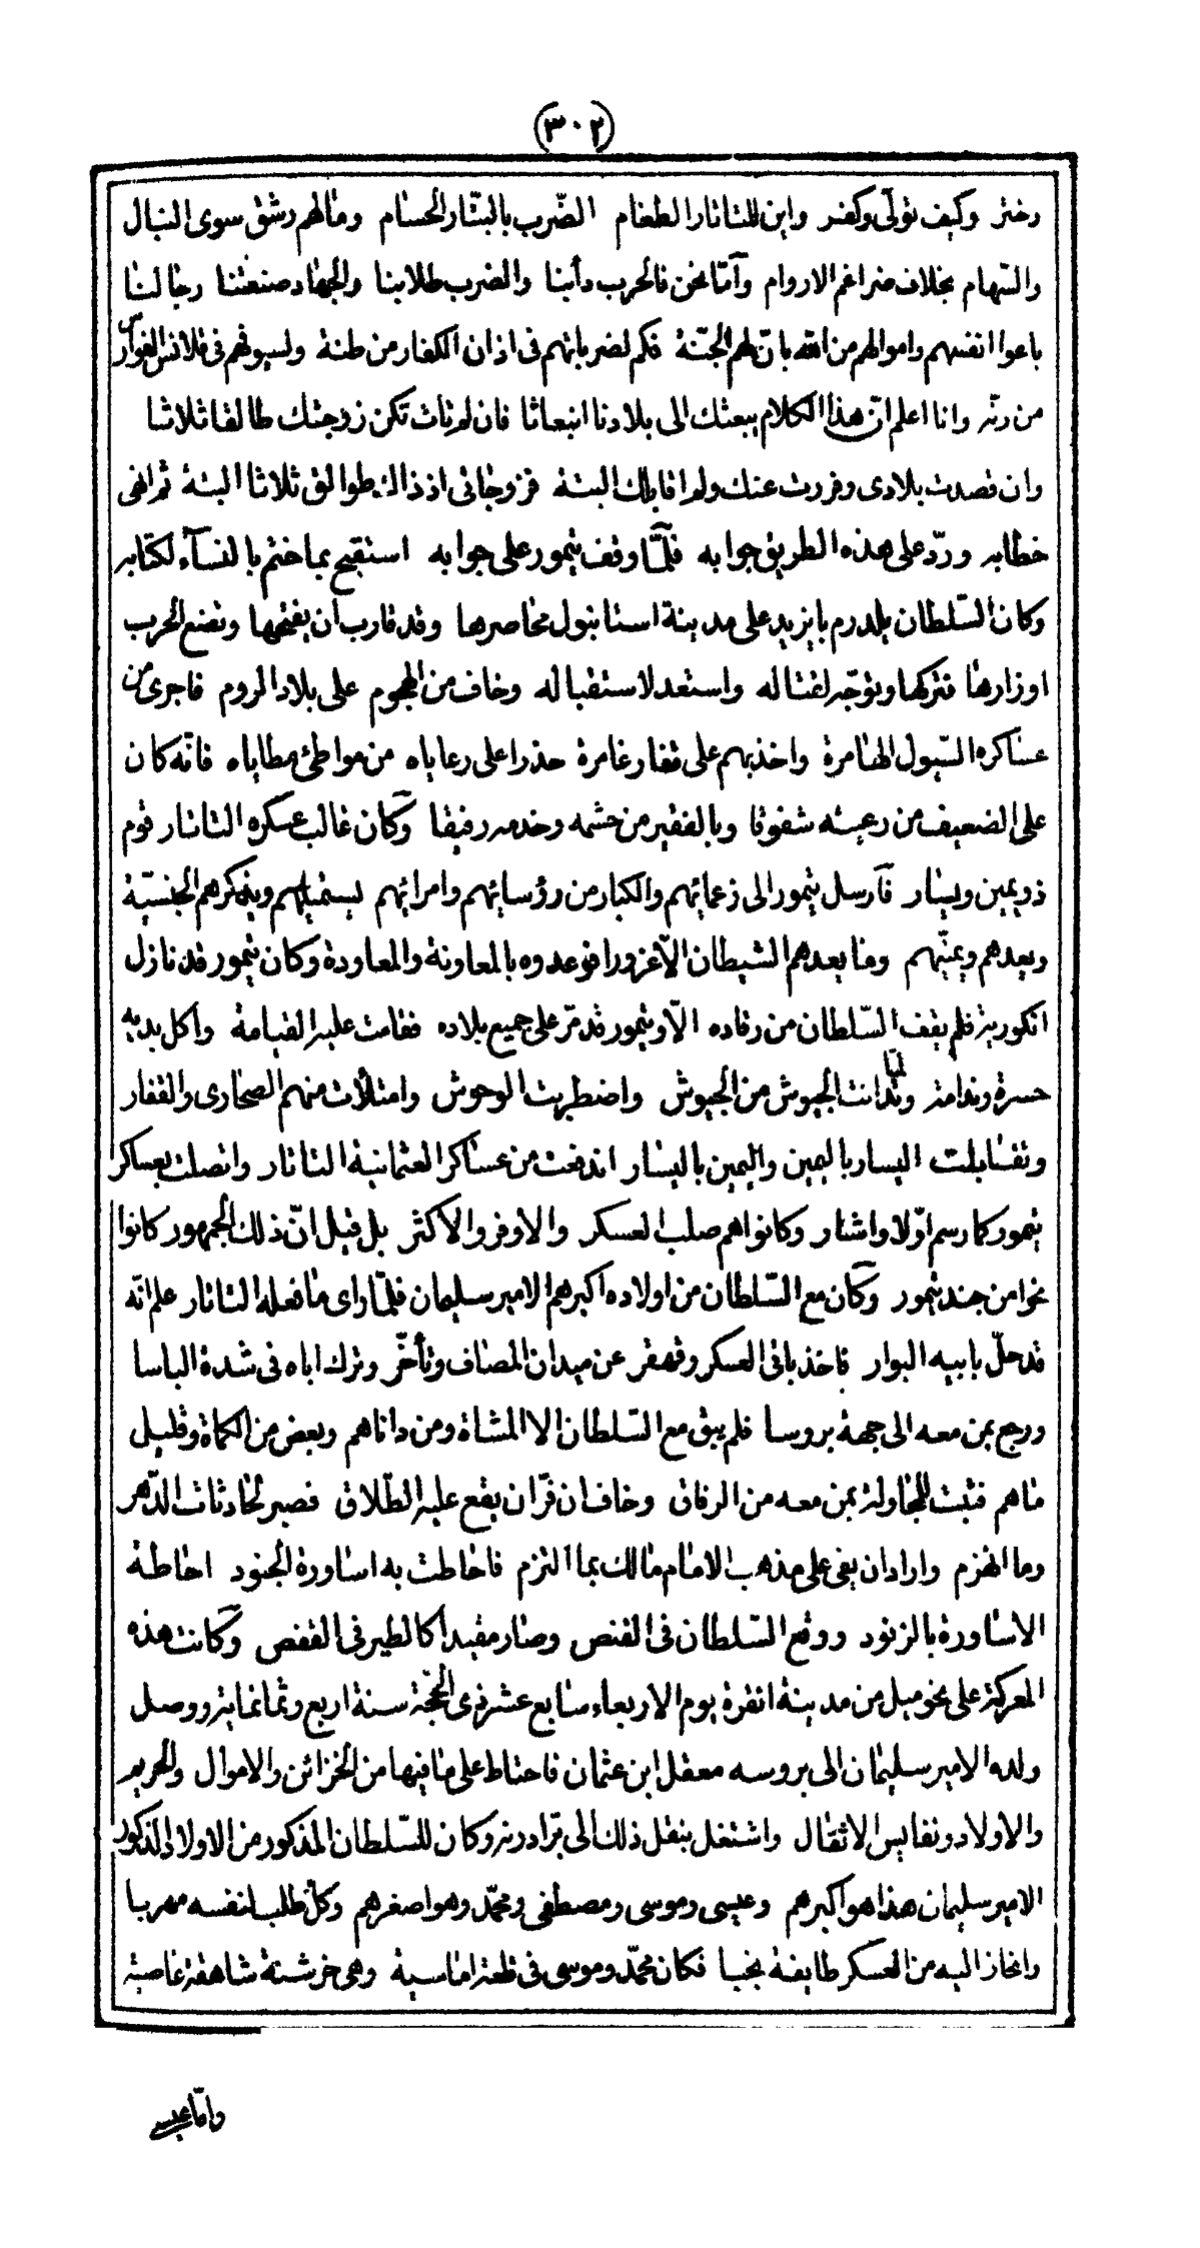 (٣٠٢)
وختر وكيف تولّى وكفر واين للتاتار الطغام الضّرب بالبتّار الحسام ومالهم رشق سوى النبال
والسّهام بخلاف ضراغم الاروام وآمّا نحن فالحرب دأبنا والضرب طلابنا والجهاد صنعتنا رجالنا
باعوا انفسهم واموالهم من الله بانّ لهم الجنّة فكم لضرباتهم فى اذان الكفار من طنة ولسيوفهم فى قلانس القوانس
من رنّة وانا اعلم انّ هذا الكلام يبعثك الى بلادنا انبعاثا فان لم تات تكن زوجتك طالقا ثلاثا
وان قصدت بلادى وفررت عنك ولم اقابلك البتة فزوجاتى اذ ذاك طوالق ثلاثا البتة ثم انهى
خطابه وردّ على هذه الطريق جوابه فلمّا وقف تيمور على جوابه استقبح بما ختم بالنسآء لكتابه
وكان السّلطان يلدرم بايزيد على مدينة استانبول محاصرها وقد قارب ان يفتحها وتضع الحرب
اوزارها فتركها وتوجّه لقتاله واستعد لاستقباله وخاف من الهجوم على بلاد الروم فاجرى من
عساكره السّيول الهامرة واخذ بهم على قفار غامرة حذرا على رعاياه من مواطئ مطاياه فانّه كان
على الضعيف من رعيته شفوقا وبالفقير من حشمه وخدمه رفيقا وكان غالب عسكره التاتار قوم
ذو يمين ويسار فأرسل تيمور الى زعمائهم والكبار من رؤسائهم وامرائهم يستميلهم ويذكرهم الجنسيّة
ويعدهم ويمنّيهم وما يعدهم الشيطان الّا غرورا فوعدوه بالمعاونة والمعاودة وكان تيمور قد نازل
انكورية فلم يقف السّلطان من رقاده الّا وتيمور قد مرّ على جميع بلاده فقامت عليه القيامة واكل يديه
حسرة وندامة ولمّا تدانت الجيوش من الجيوش واضطربت الوحوش وامتلأت منهم الصحارى والقفار
وتقابلت اليسار باليمين واليمين باليسار اندفعت من عساكر العثمانية التاتار واتصلت بعساكر
تيمور كما رسم اوّلا واشار وكانوا هم صلب العسكر والاوفر والاكثر بل قيل انّ ذلك الجمهور كانوا
نحوا من جند تيمور وكان مع السّلطان من اولاده اكبرهم الامير سليمان فلمّا راى ما فعله التاتار علم انّه
قد حلّ بابيه البوار فاخذ باقى العسكر وقهقر عن ميدان المصاف وتأخّر وترك اباه فى شدة الباسا
ورجع بمن معه الى جهة بروسا فلم يبق مع السّلطان الا المشاة ومن داناهم وبعض من الكماة وقليل
ماهم فثبت للمجاولة بمن معه من الرفاق وخاف ان فرّ ان يقع عليه الطّلاق فصبر لحادثات الدّهر
وما انهزم واراد ان يفى على مذهب الامام مالك بما التزم فاحاطت به اساورة الجنود احاطة
الاساورة بالزنود ووقع السّلطان فى القنص وصار مقيدا كالطير فى القفص وكانت هذه
المعركة على نحو ميل من مدينة انقرة يوم الاربعاء سابع عشر ذى الحجّة سنة اربع وثمانماية ووصل
ولده الامير سليمان الى بروسه معقل ابن عثمان فاحتاط على ما فيها من الخزائن والاموال والحريم
والاولاد ونفايس الاثقال واشتغل بنقل ذلك الى برّ ادرنه وكان للسّلطان المذكور من الاولاد الذكور
الامير سليمان هذا هو اكبرهم وعيسى وموسى ومصطفى ومحمّد وهو اصغرهم وكلّ طلب لنفسه مهربا
وانحاز اليه من العسكر طايفة نجبا فكان محمّد وموسى فى قلعة اماسية وهى خرشنة شاهقة عاصية
وامّا عيسى